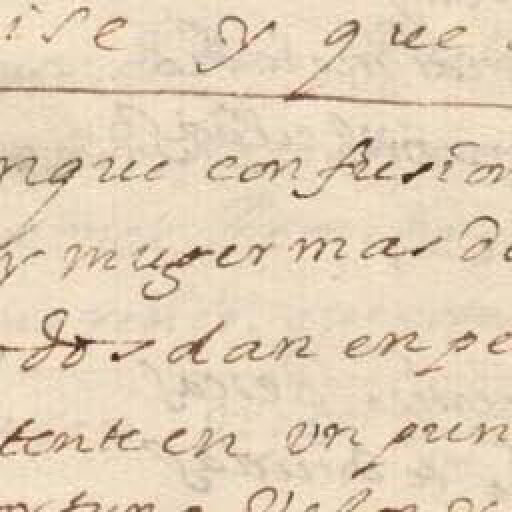 ise y que
nque confusion
y muger mas de
dos dan en pe
tente en vn pun